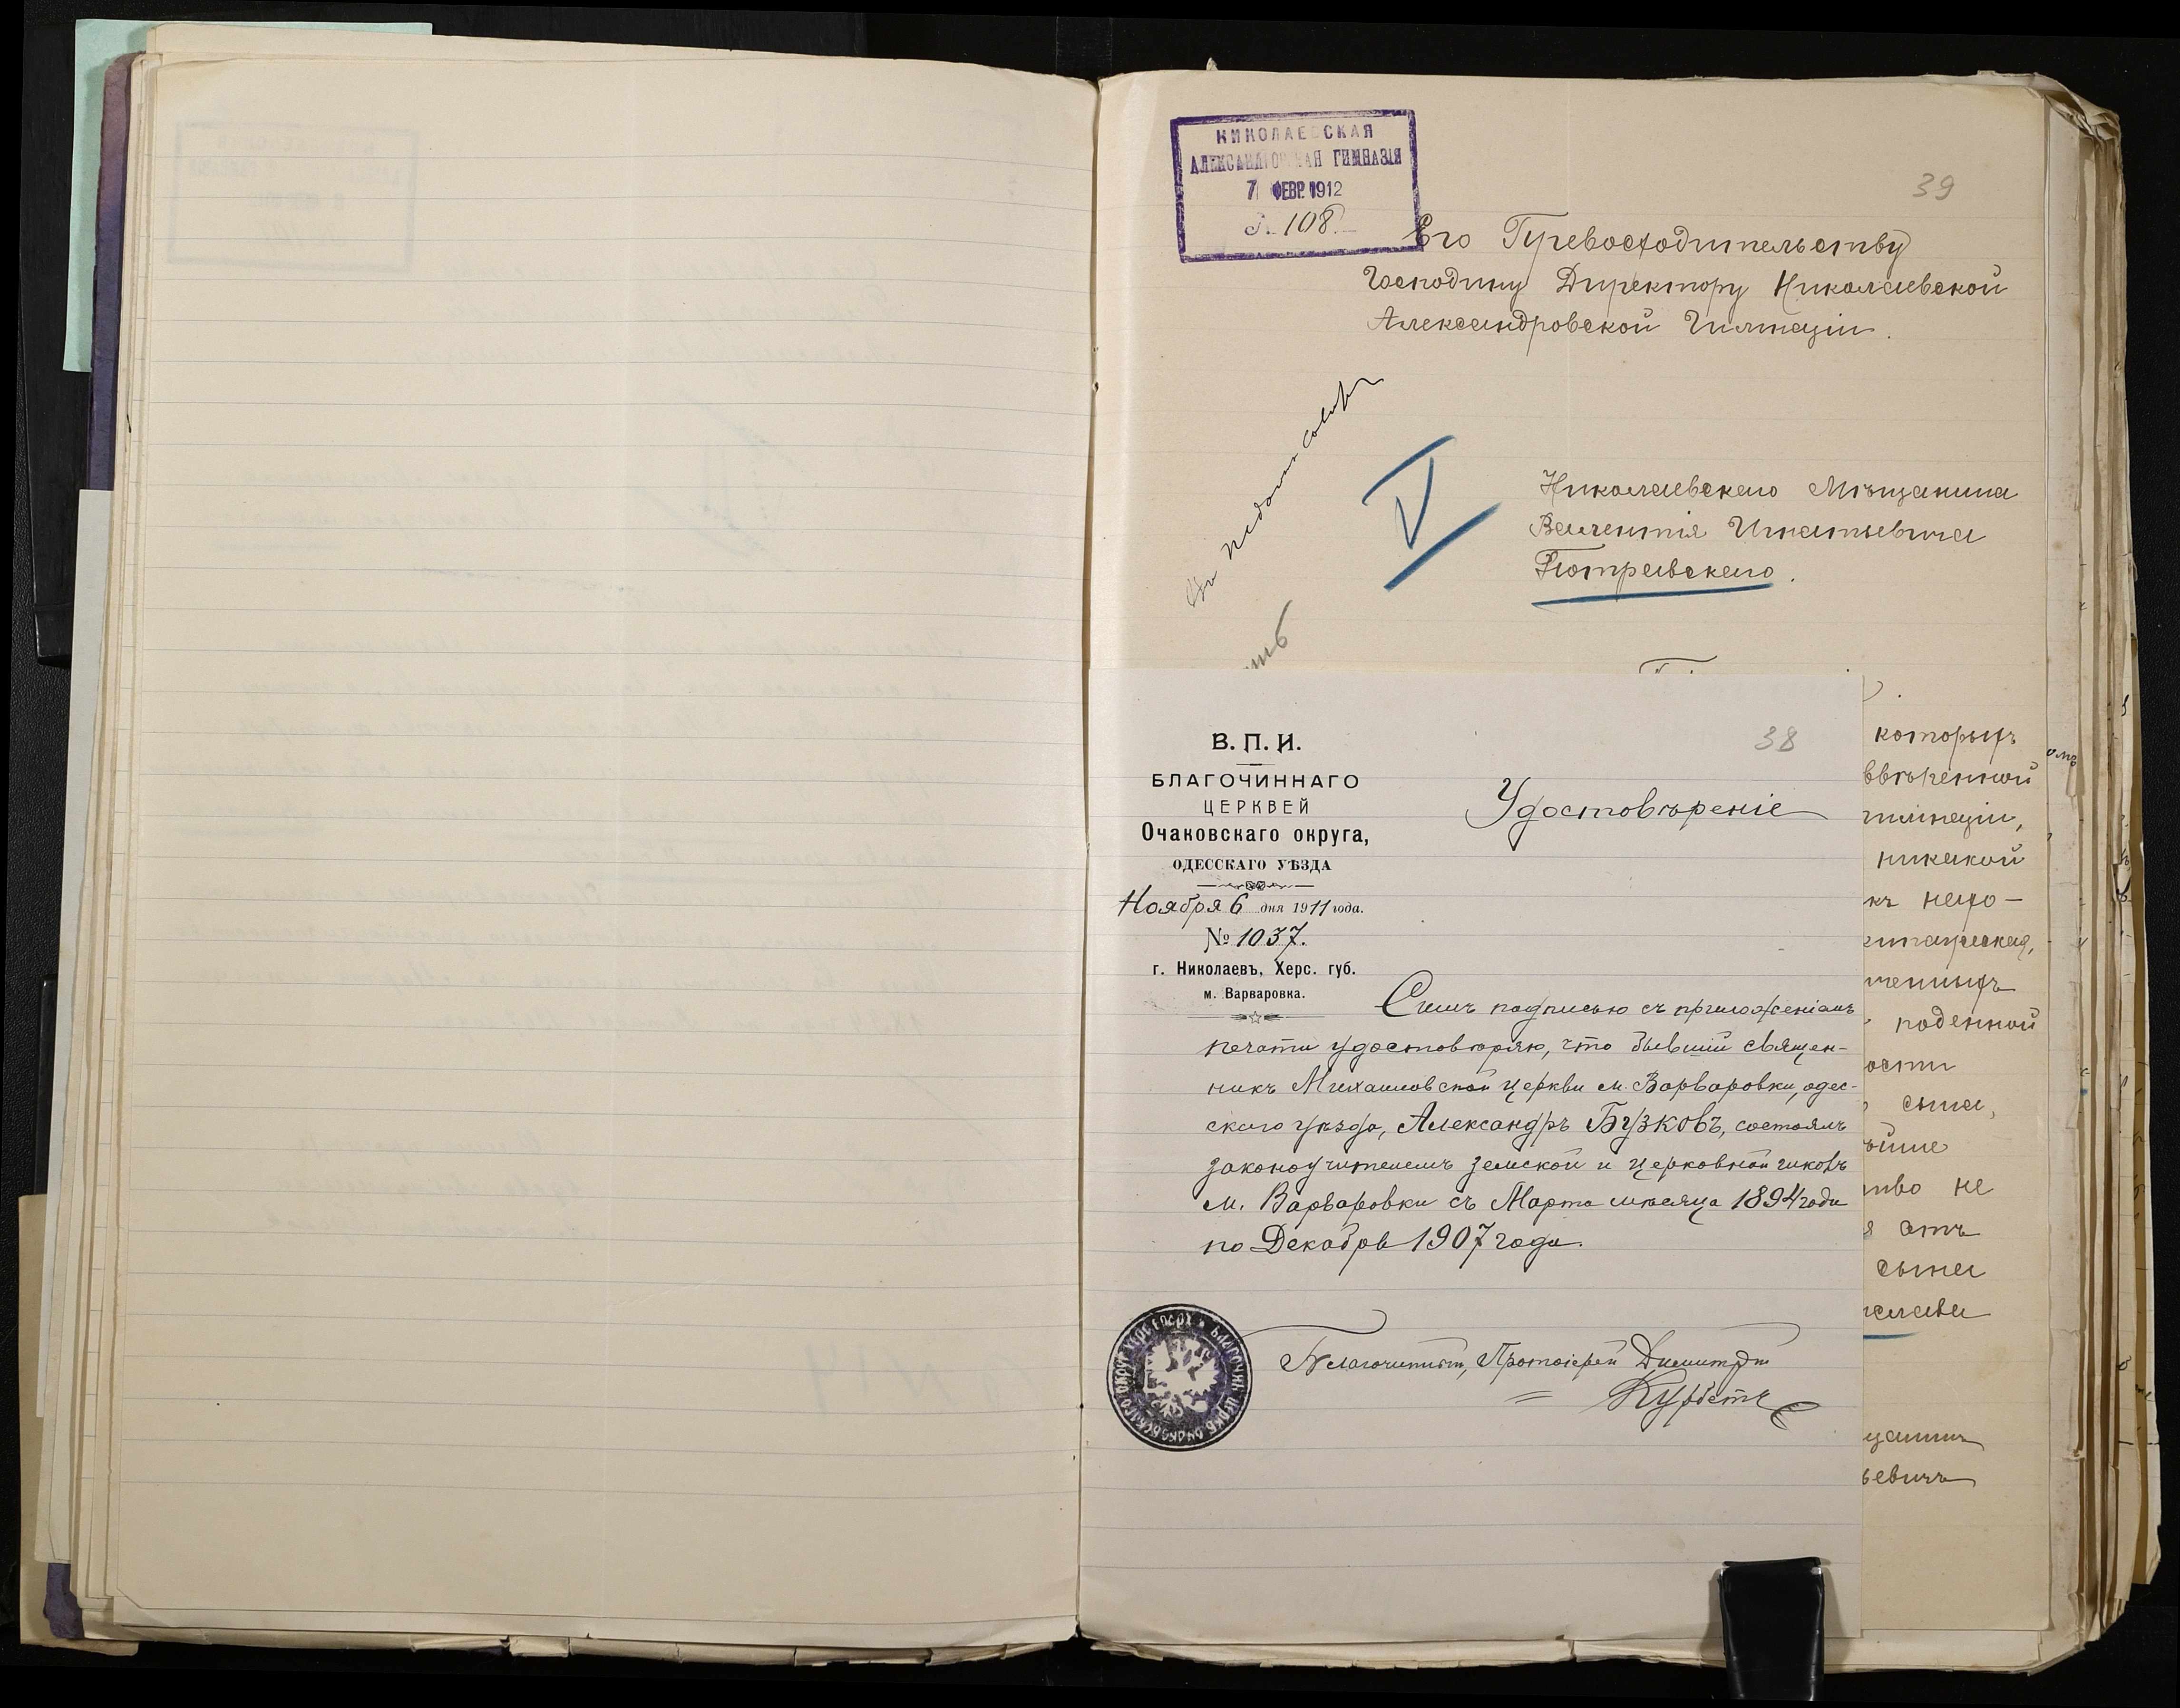 НИКОЛАЕВСКАЯ
АЛЕКСАНДРОВСКАЯ ГИМНАЗІЯ
7 ФЕВР. 1912
№ 108.
39
Его Превосходительству
Господину Директору Николаевской
Александровской Гимназіи.
V
Николаевскаго Мѣщанина
Викентія Игнатьевича
Потревскаго.
38
В. П. И.
БЛАГОЧИННАГО
ЦЕРКВЕЙ
Очаковскаго округа,
ОДЕССКАГО УѢЗДА
Ноября 6 дня 1911 года.
№ 1037.
г. Николаевъ, Херс. губ.
м. Варваровка.
Удостовѣреніе
Симъ подписью съ приложеніемъ
печати удостовѣряю, что бывшій священ-
никъ Михаиловской церкви м. Варваровки, одес-
скаго уѣзда, Александръ Бузковъ, состоялъ
законоучителемъ земской и церковной школъ
м. Варваровки съ Марта мѣсяца 1894 года
по Декабрь 1907 года.
Благочинный, Протоіерей Димитрій
Курбетъ
которыхъ
ввѣренной
никакой
къ непо-
поденной
ости
сына,
ство не
отъ
сына